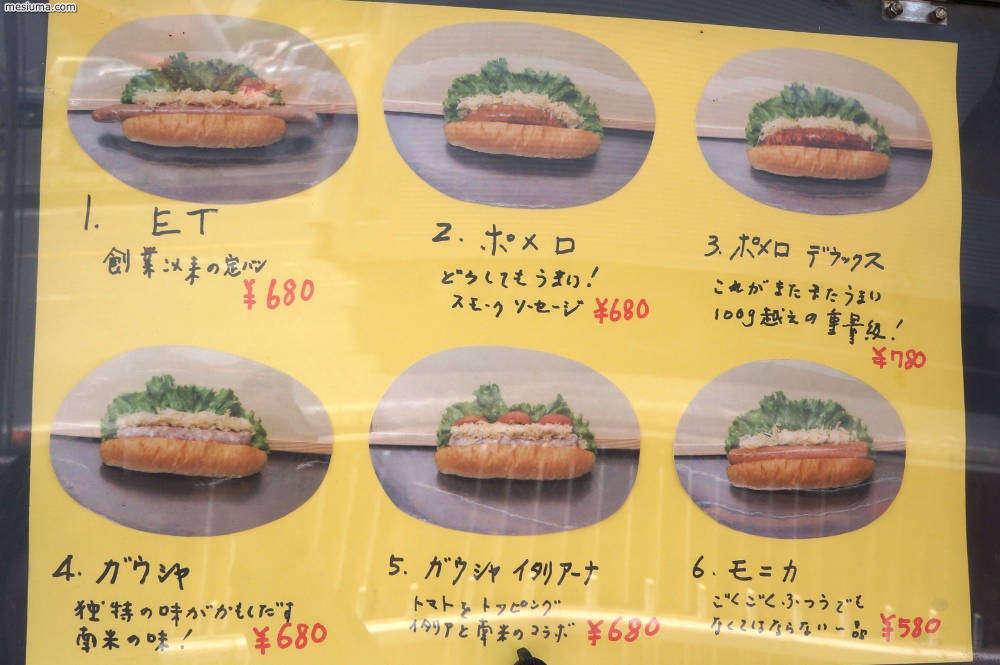 mesiuma.com
1. ET
創業以来の定パン
¥680
2. ポメロ
どうしてもうまい!
スモークソーセージ ¥680
3. ポメロ デラックス
これがまたまたうまい
100g越えの重量級!
¥780
4. ガウシャ
独特の味がかもしだす
南米の味! ¥680
5. ガウシャ イタリアーナ
トマトをトッピング
イタリアと南米のコラボ ¥680
6. モニカ
ごくごくふつうでも
なくてはならない一品 ¥580